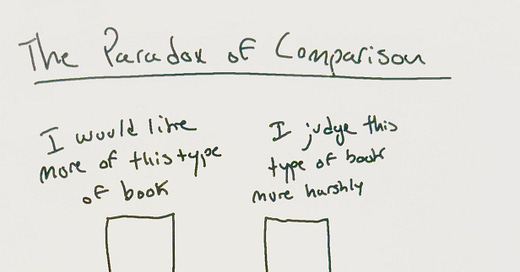 The Paradox of Comparison
I would like
more of this type
of book
I judge this
type of book
more harshly